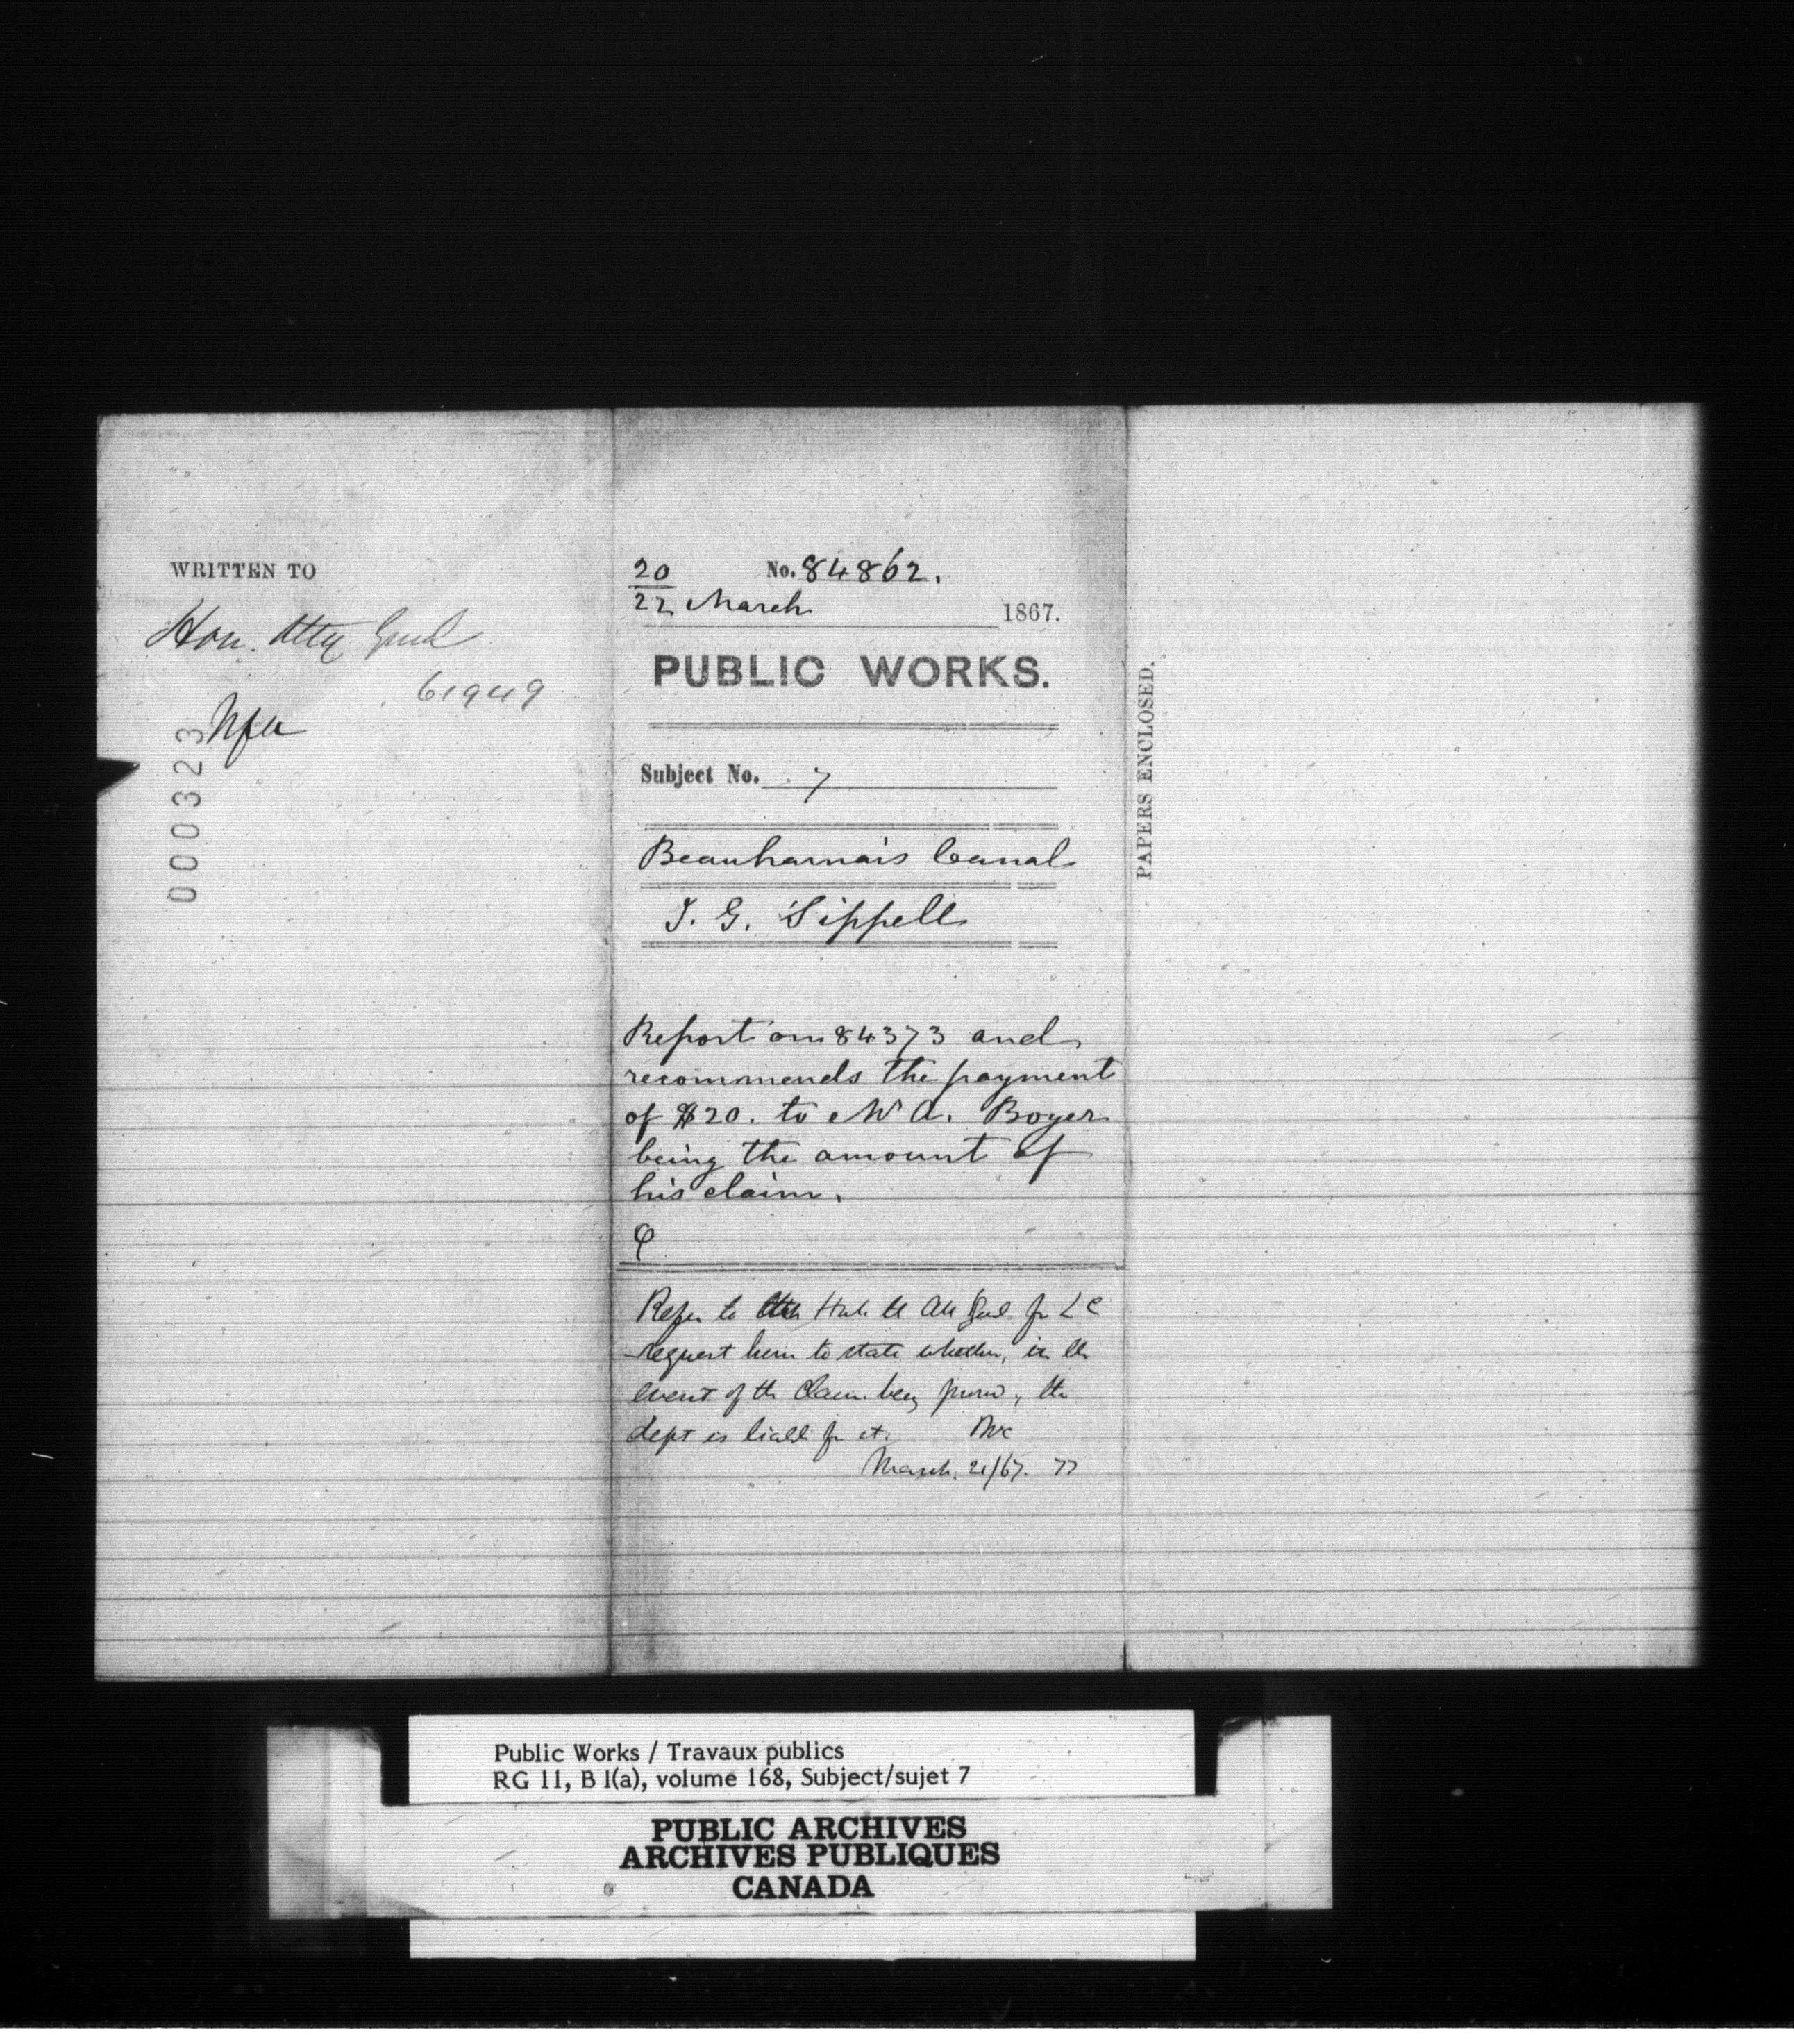 WRITTEN TO
Hon. Atty Genl
61949
000323
20 No. 84862.
22 March 1867.
PUBLIC WORKS.
Subject No. 7
Beauharnais Canal
J. G. Sippell
Report on 84373 and
recommends the payment
of $20. to Mr A. Boyer
being the amount of
his claim.
Refer to Hon. Att Genl for L C
request him to state whether, in the
event of the claim being proved, the
dept is liable for it.
March 21/67.
PAPERS ENCLOSED.
Public Works / Travaux publics
RG 11, B 1(a), volume 168, Subject/sujet 7
PUBLIC ARCHIVES
ARCHIVES PUBLIQUES
CANADA